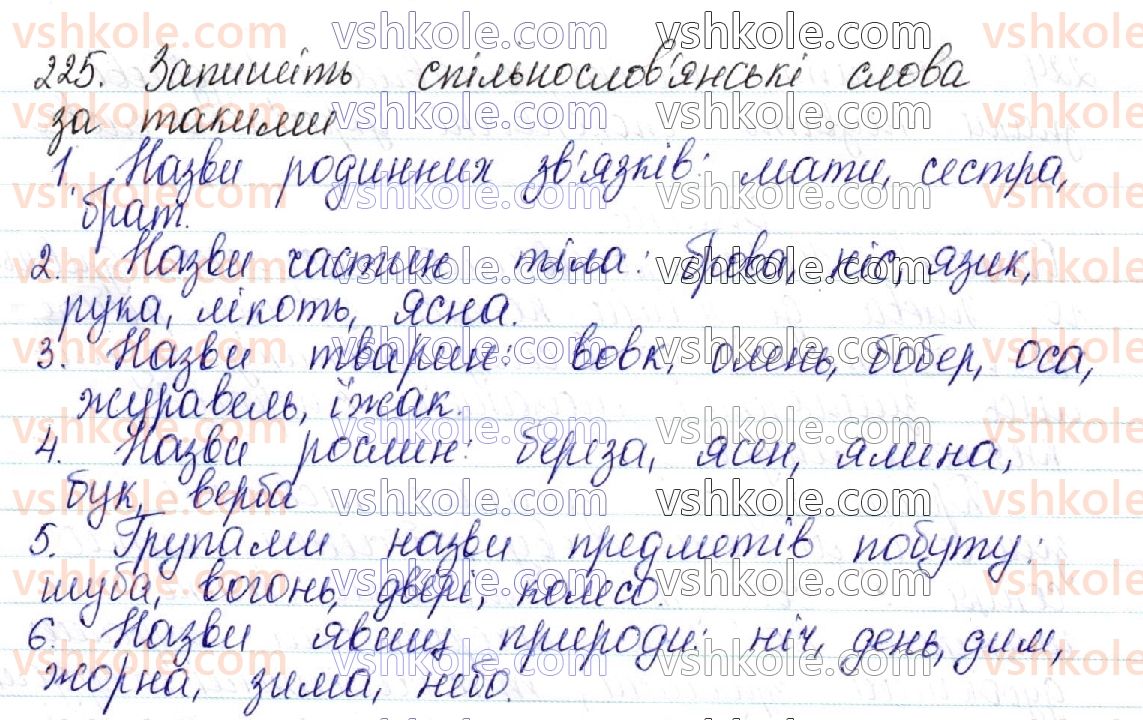 225. Запишіть спільнослов'янські слова
за такими
1. Назви родинних зв'язків: мати, сестра,
брат.
2. Назви частин тіла: брова, ніс, язик,
рука, лікоть, ясна.
3. Назви тварин: вовк, олень, бобер, оса,
журавель, їжак.
4. Назви рослин: береза, ясен, ялина,
бук, верба
5. Групами назви предметів побуту:
шуба, вогонь, двері, колесо.
6. Назви явищ природи: ніч, день, дим,
жорна, зима, небо.